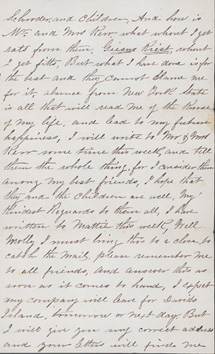 Schooder, and Children, And how is
Mr. and Mrs Kerr, what whont I get
eats from them, Guess Kiest, whont
I get fitts, But what I have done is for
the best and they cannot blame me
for it, absence from New York State
is all that will read me of the
of my life, and lead to my future
happiness, I will write to Mr & Mrs
Kerr some time this week, and tell
them the whole thing, for I consider them
among my best friends, I hope that
they and the children are well, My
kindest Reguards to them all, I have
written to Mattie this week, Well
Molly I must bring this to a close to
catch the mail, please remember me
to all friends, and answer this as
soon as it comes to hand, I expect
my company will leave for Davids
Island, tomorrow or next day, But
I will give you my correct address
and your letters will find me